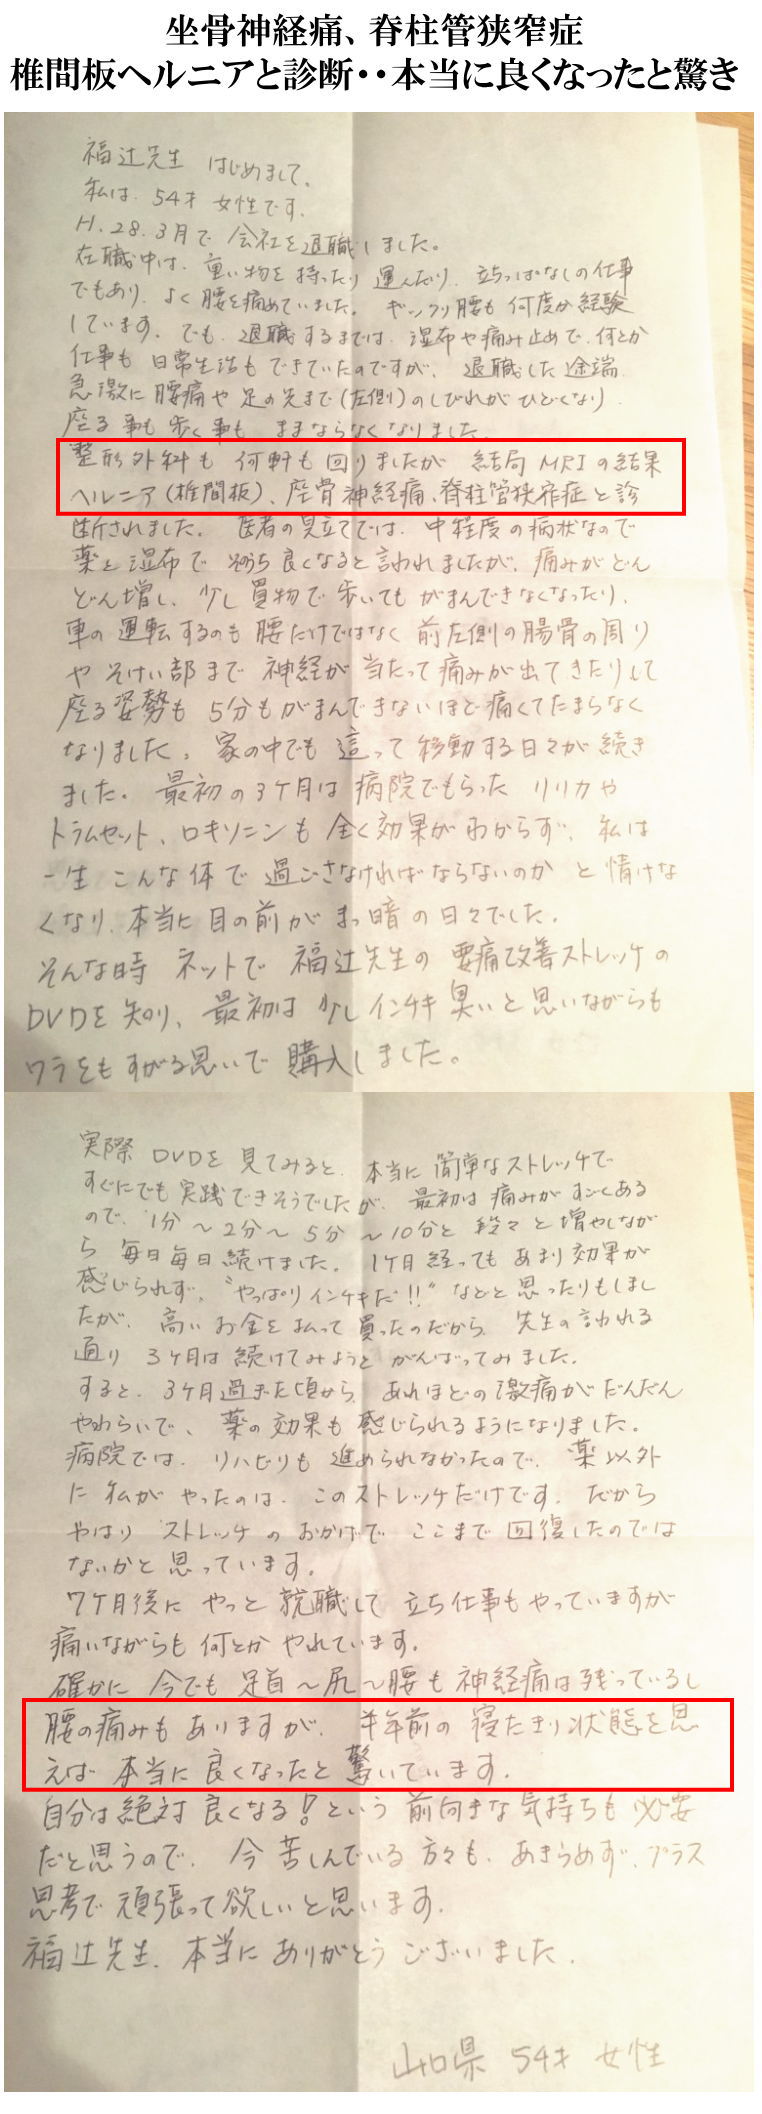 坐骨神経痛、脊柱管狭窄症
椎間板ヘルニアと診断・・本当に良くなったと驚き
福辻先生 はじめまして。
私は、54才 女性です。
H.28.3月で 会社を退職しました。
在職中は、重い物を持ったり 運んだり、立ちっぱなしの仕事
でもあり、よく腰を痛めていました。ギックリ腰も何度か経験
しています。でも、退職するまでは、湿布や痛み止めで、何とか
仕事も 日常生活も できていたのですが、退職した途端、
急激に 腰痛や 足の先まで(左側)のしびれがひどくなり、
座る事も 歩く事も ままならなくなりました。
整形外科も 何軒も 回りましたが 結局 MRIの結果
ヘルニア(椎間板)、座骨神経痛、脊柱管狭窄症と診
断されました。医者の見立てでは、中程度の病状なので
薬と湿布で そのうち良くなると言われましたが、痛みがどん
どん増し、少し買物で歩いても がまんできなくなったり、
車の運転するのも腰だけではなく 前左側の腸骨の周り
や そけい部まで 神経が 当たって痛みが出てきたりして
座る姿勢も 5分もがまんできないほど痛くてたまらなく
なりました。家の中でも 這って 移動する日々が続き
ました。最初の3ケ月は 病院でもらった リリカや
トラムセット、ロキソニンも 全く効果がわからず、私は
一生 こんな体で 過ごさなければならないのか と情けな
くなり、本当に目の前が まっ暗の日々でした。
そんな時 ネットで 福辻先生の 腰痛改善ストレッチの
DVDを知り、最初は 少しインチキ臭いと思いながらも
ワラをもすがる思いで 購入しました。
実際 DVDを見てみると、本当に簡単なストレッチで
すぐにでも実践できそうでしたが、最初は痛みがすごくある
ので、1分〜2分〜5分〜10分と 段々と増やしなが
ら 毎日毎日続けました。1ケ月経ってもあまり効果が
感じられず、“やっぱりインチキだ!!”などと思ったりもしまし
たが、高いお金を払って買ったのだから、先生の言われる
通り 3ケ月は続けてみようと がんばってみました。
すると、3ケ月過ぎた頃から、あれほどの激痛がだんだん
やわらいで、薬の効果も感じられるようになりました。
病院では、リハビリも進められなかったので、薬以外
に私がやったのは、このストレッチだけです。だから
やはり ストレッチのおかげで ここまで回復したのでは
ないかと思っています。
7ケ月後に やっと就職して 立ち仕事もやっていますが
痛いながらも何とかやれています。
確かに 今でも 足首〜尻〜腰も神経痛は残っているし
腰の痛みもありますが、半年前の寝たきり状態を思
えば 本当に良くなったと驚いています。
自分は絶対良くなる!という前向きな気持ちも必要
だと思うので、今苦しんでいる方々も、あきらめず、プラス
思考で頑張って欲しいと思います。
福辻先生、本当にありがとうございました。
山口県 54才 女性